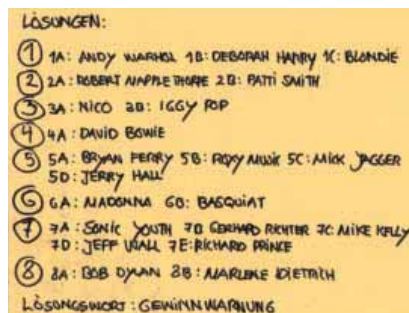 LÖSUNGEN:
1 1A: ANDY WARHOL 1B: DEBORAH HARRY 1C: BLONDIE
2 2A: ROBERT MAPPLETHORPE 2B: PATTI SMITH
3 3A: NICO 3B: IGGY POP
4 4A: DAVID BOWIE
5 5A: BRYAN FERRY 5B: ROXY MUSIC 5C: MICK JAGGER
5D: JERRY HALL
6 6A: MADONNA 6B: BASQUIAT
7 7A: SONIC YOUTH 7B GERHARD RICHTER 7C: MIKE KELLY
7D: JEFF WALL 7E: RICHARD PRINCE
8 8A: BOB DYLAN 8B: MARLENE DIETRICH
LÖSUNGSWORT: GEWINNWARNUNG